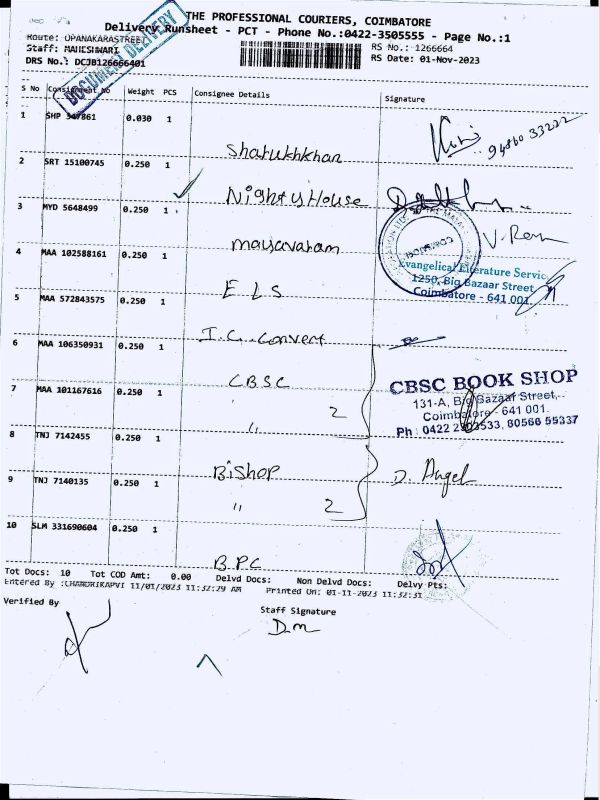 THE PROFESSIONAL COURIERS, COIMBATORE
Delivery Runsheet - PCT - Phone No.:0422-3505555 - Page No.:1
Route: OPANAKARASTREET
RS No.: 1266664
Staff: MAHESHWARI
RS Date: 01-Nov-2023
DRS No.: DCJB126666401
DOCUMENT DELIVERY
S No Consignment No Weight PCS Consignee Details Signature
1 SHP 347861 0.030 1 Sharukhkhan
94860 33222
2 SRT 15100745 0.250 1 Nighty House
3 MYD 5648499 0.250 1 mayavaram
V. Ram
4 MAA 102588161 0.250 1 E L S
Evangelical Literature Service
1250, Big Bazaar Street
Coimbatore - 641 001.
5 MAA 572843575 0.250 1 I.C. Convert
6 MAA 106350931 0.250 1 CBSC
7 MAA 101167616 0.250 1 " 2
CBSC BOOK SHOP
131-A, Big Bazaar Street,
Coimbatore - 641 001.
Ph : 0422 2303533, 80566 55337
8 TNJ 7142455 0.250 1 Bishop
D. Angel
9 TNJ 7140135 0.250 1 " 2
10 SLM 331690604 0.250 1 B.P.C
Tot Docs: 10 Tot COD Amt: 0.00 Delvd Docs: Non Delvd Docs: Delvy Pts:
Entered By :CHANDRIKAPVI 11/01/2023 11:32:29 AM Printed On: 01-11-2023 11:32:31
Verified By
Staff Signature
D.m